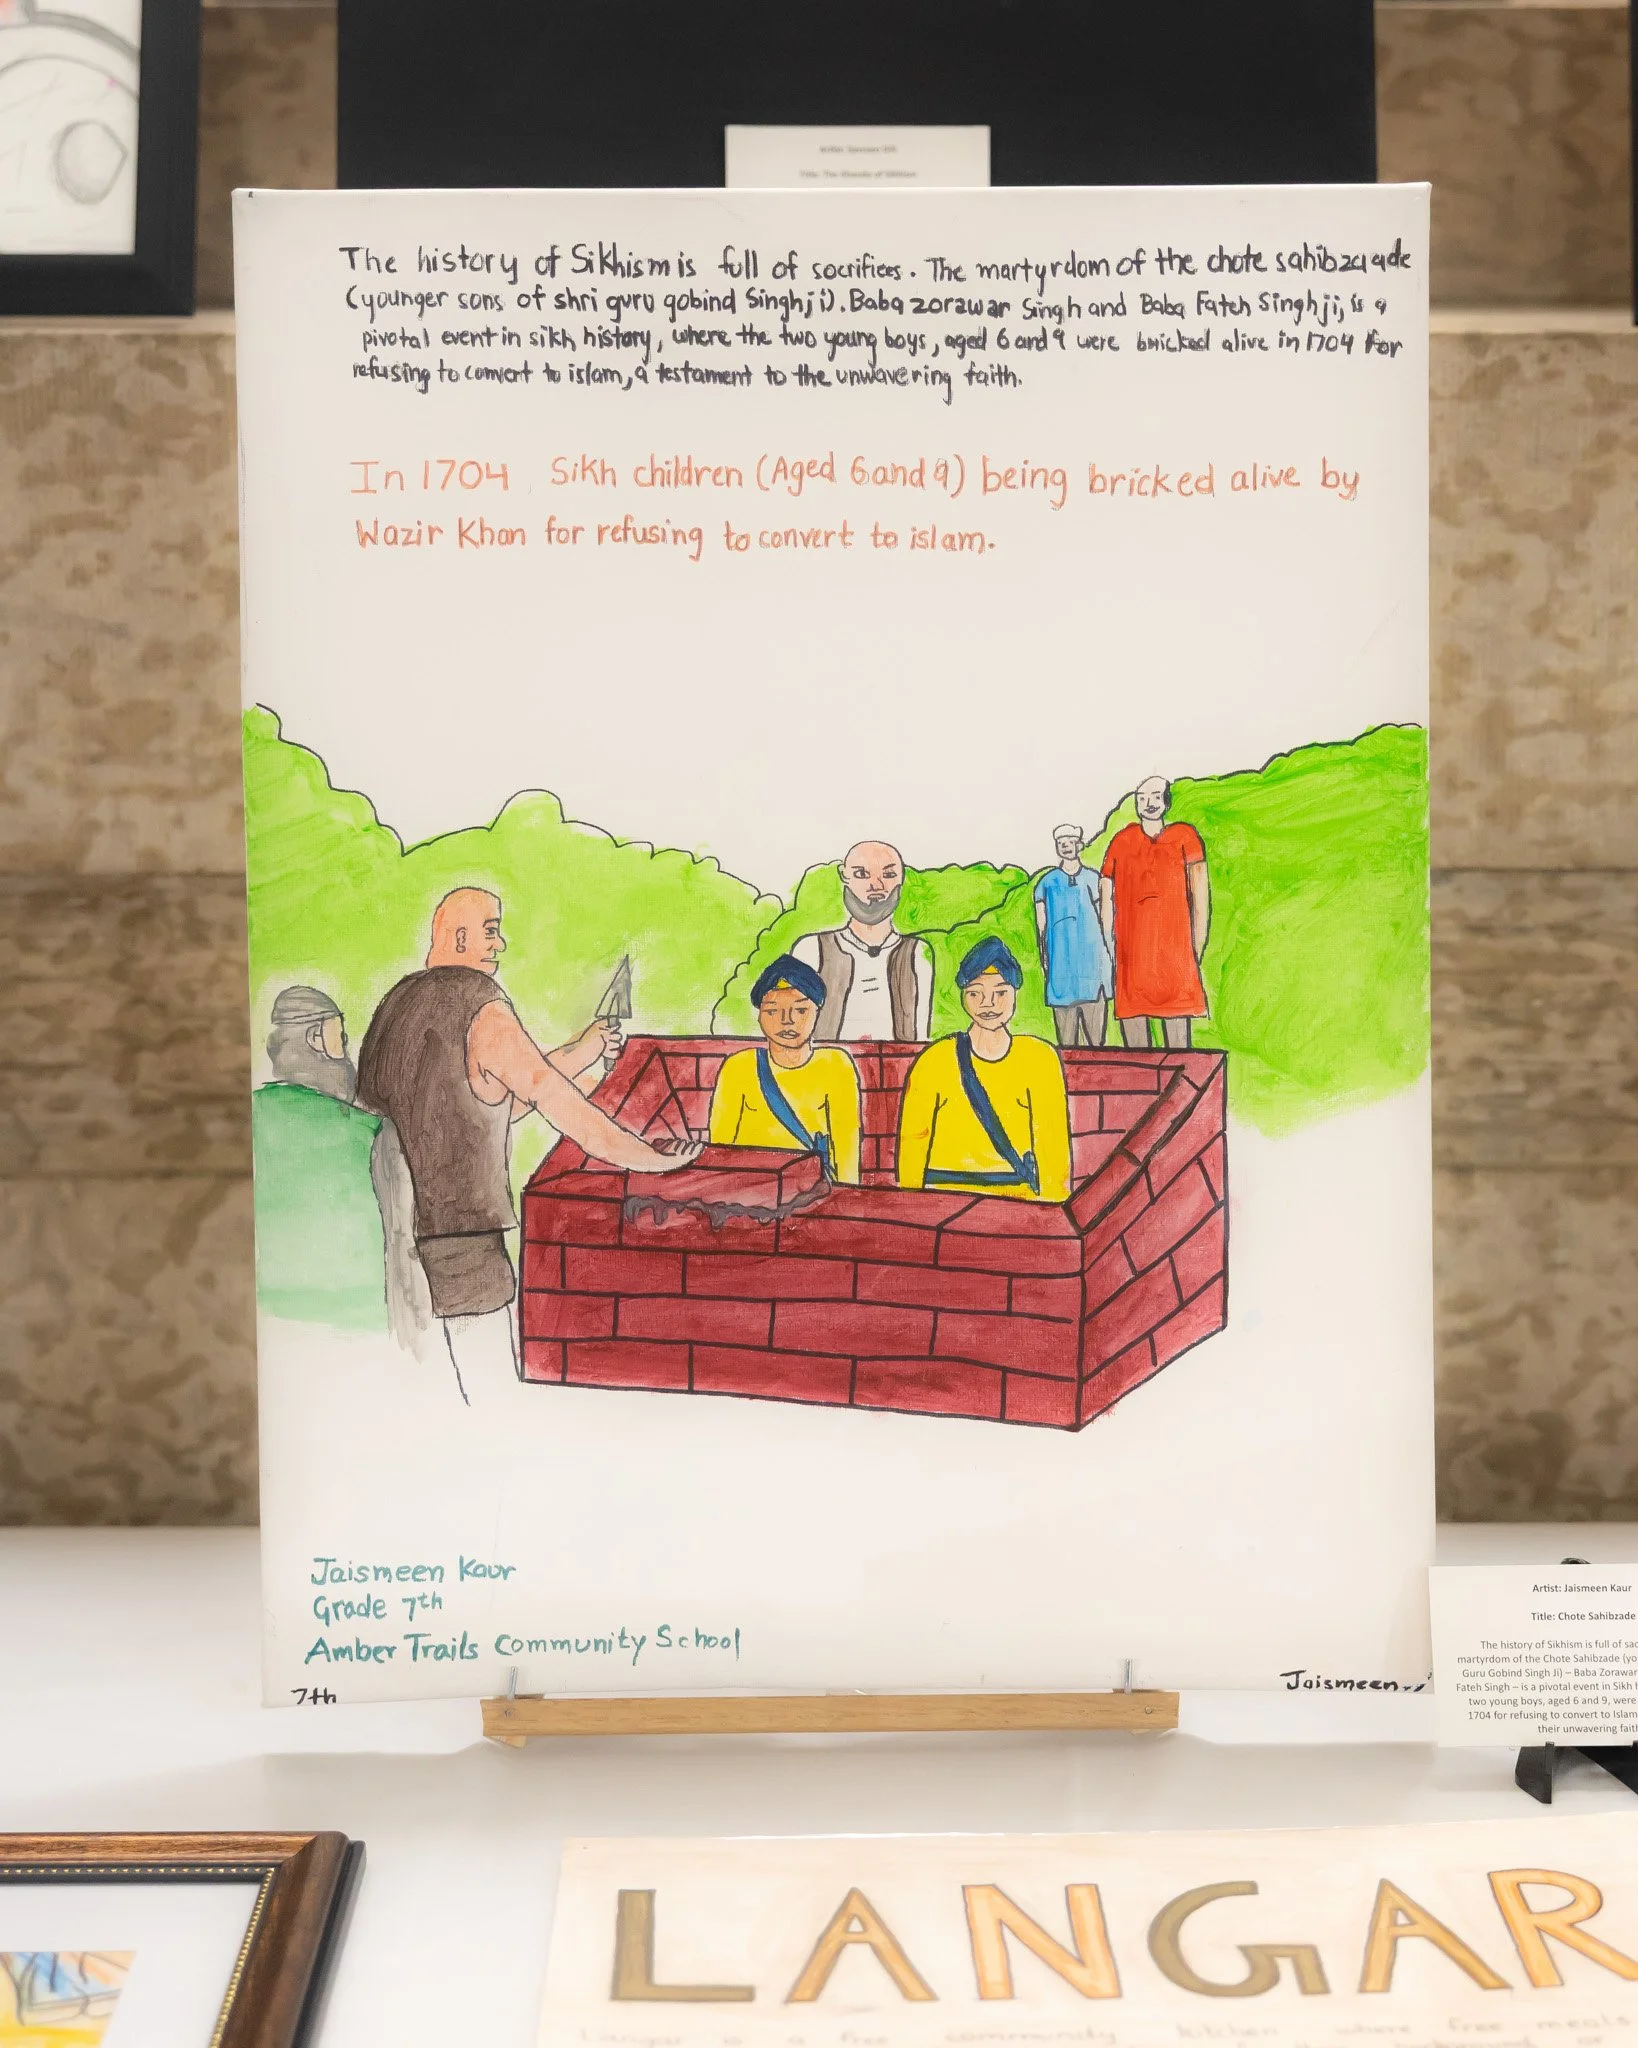 Title: The Khanda of Sikhism
The history of Sikhism is full of socrifices. The martyrdom of the chote sahibzaade
(younger sons of shri guru gobind Singhji). Baba zorawar Singh and Baba Fateh Singhji, is a
pivotal event in sikh history, where the two young boys, aged 6 and 9 were bricked alive in 1704 for
refusing to convert to islam, a testament to the unwavering faith.
In 1704 Sikh children (Aged 6 and 9) being bricked alive by
Wazir Khan for refusing to convert to islam.
Jaismeen Kaur
Grade 7th
Amber Trails Community School
7th
Jaismeen
Artist: Jaismeen Kaur
Title: Chote Sahibzade
The history of Sikhism is full of
martyrdom of the Chote Sahibzade
Guru Gobind Singh Ji) – Baba Zorawar
Fateh Singh – is a pivotal event in Sikh
two young boys, aged 6 and 9, were
1704 for refusing to convert to Islam
their unwavering
LANGAR
Langar is a free community kitchen where free meals